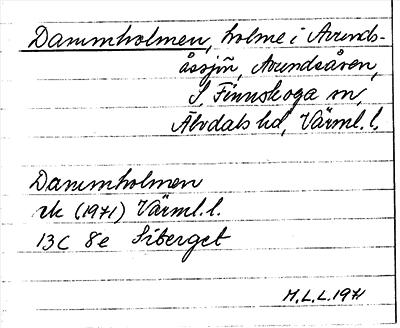 Dammholmen, holme i Arunds-
åssjön, Arundsåsen,
S. Finnskoga sn,
Älvdals hd, Värml. l.
Dammholmen
rk (1971) Värml. l.
13C 8e Siberget
M.L.L. 1971